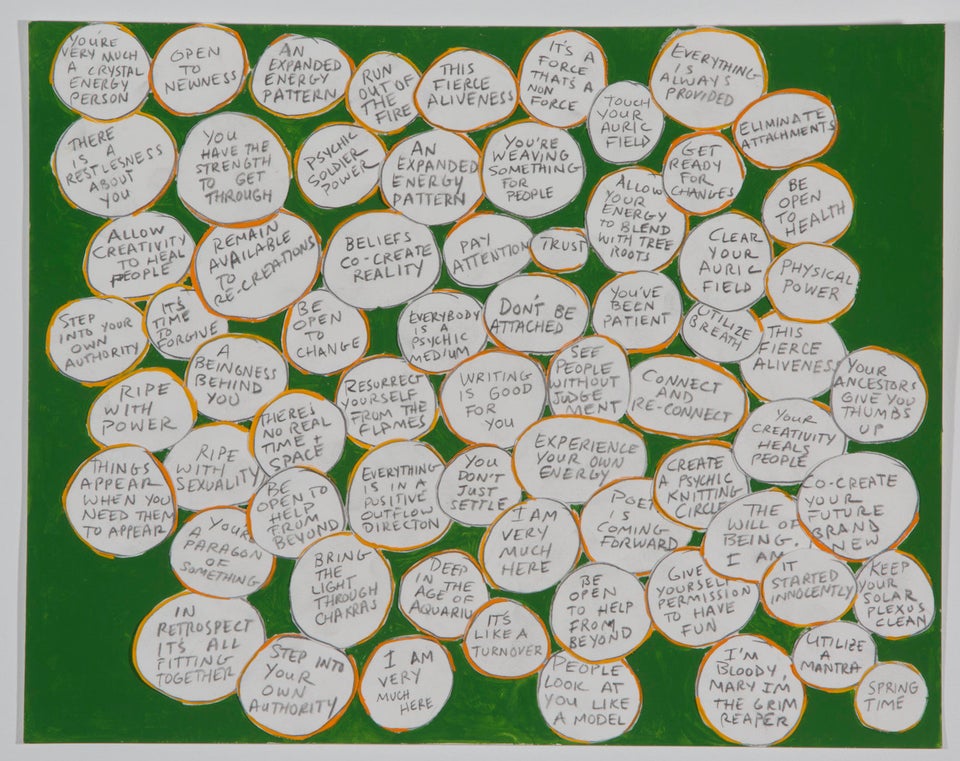 YOU'RE
VERY MUCH
A CRYSTAL
ENERGY
PERSON
OPEN
TO
NEWNESS
AN
EXPANDED
ENERGY
PATTERN
RUN
OUT OF
THE
FIRE
THIS
FIERCE
ALIVENESS
IT'S A
FORCE
THAT'S A
NON
FORCE
EVERYTHING
IS
ALWAYS
PROVIDED
TOUCH
YOUR
AURIC
FIELD
ELIMINATE
ATTACHMENTS
THERE
IS A
RESTLESNESS
ABOUT
YOU
YOU
HAVE THE
STRENGTH
TO GET
THROUGH
PSYCHIC
SOLDIER
POWER
AN
EXPANDED
ENERGY
PATTERN
YOU'RE
WEAVING
SOMETHING
FOR
PEOPLE
GET
READY
FOR
CHANGES
ALLOW
YOUR
ENERGY
TO BLEND
WITH TREE
ROOTS
BE
OPEN
TO
HEALTH
ALLOW
CREATIVITY
TO HEAL
PEOPLE
REMAIN
AVAILABLE
TO
RE-CREATIONS
BELIEFS
CO-CREATE
REALITY
PAY
ATTENTION
TRUST
CLEAR
YOUR
AURIC
FIELD
PHYSICAL
POWER
STEP
INTO YOUR
OWN
AUTHORITY
IT'S
TIME
TO
FORGIVE
BE
OPEN
TO
CHANGE
EVERYBODY
IS A
PSYCHIC
MEDIUM
DON'T BE
ATTACHED
YOU'VE
BEEN
PATIENT
UTILIZE
BREATH
THIS
FIERCE
ALIVENESS
A
BEINGNESS
BEHIND
YOU
YOUR
ANCESTORS
GIVE YOU
THUMBS
UP
RIPE
WITH
POWER
THERES
NO REAL
TIME +
SPACE
RESURRECT
YOURSELF
FROM THE
FLAMES
WRITING
IS GOOD
FOR
YOU
SEE
PEOPLE
WITHOUT
JUDGE
MENT
CONNECT
AND
RE-CONNECT
YOUR
CREATIVITY
HEALS
PEOPLE
THINGS
APPEAR
WHEN YOU
NEED THEM
TO APPEAR
RIPE
WITH
SEXUALITY
BE
OPEN TO
HELP
FROM
BEYOND
EVERYTHING
IS IN A
POSITIVE
OUTFLOW
DIRECTON
YOU
DON'T
JUST
SETTLE
EXPERIENCE
YOUR OWN
ENERGY
CREATE
A PSYCHIC
KNITTING
CIRCLE
CO-CREATE
YOUR
FUTURE
BRAND
NEW
YOUR
A
PARAGON
OF
SOMETHING
BRING
THE
LIGHT
THROUGH
CHAKRAS
DEEP
IN THE
AGE OF
AQUARIU
I AM
VERY
MUCH
HERE
POET
IS
COMING
FORWARD
THE
WILL OF
BEING.
I AM
IN
RETROSPECT
IT'S ALL
FITTING
TOGETHER
STEP INTO
YOUR
OWN
AUTHORITY
I AM
VERY
MUCH
HERE
IT'S
LIKE A
TURNOVER
BE
OPEN
TO HELP
FROM
BEYOND
GIVE
YOURSELF
PERMISSION
TO HAVE
FUN
IT
STARTED
INNOCENTLY
KEEP
YOUR
SOLAR
PLEXUS
CLEAN
PEOPLE
LOOK AT
YOU LIKE
A MODEL
I'M
BLOODY,
MARY IM
THE GRIM
REAPER
UTILIZE
A
MANTRA
SPRING
TIME